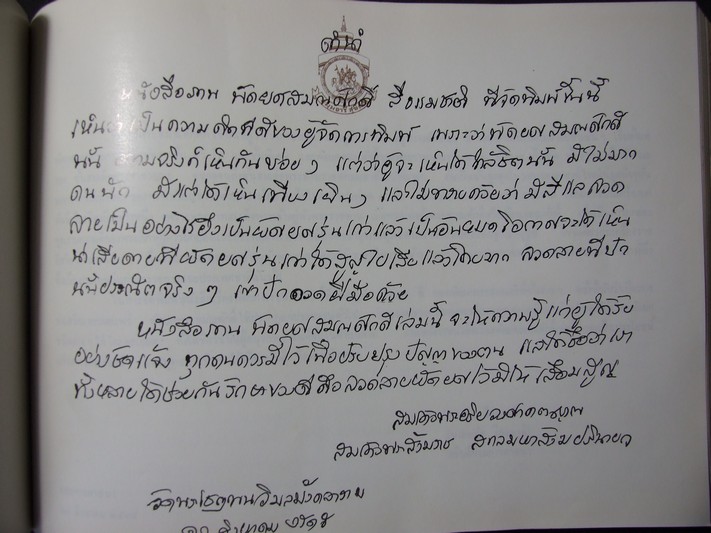 คำนำ
หนังสือภาพ พัดยศสมณศักดิ์ สื่อธรรมชาติ ที่จัดพิมพ์ขึ้นนี้
เห็นว่าเป็นความคิดที่ดีของผู้จัดการพิมพ์ เพราะว่าพัดยศสมณศักดิ์
นั้น ตามจริงก็เห็นกันบ่อย ๆ แต่ว่าผู้จะเห็นได้ใกล้ชิดนั้น มีไม่มาก
คนนัก มักแต่ได้เห็นเพียงเผิน ๆ และไม่ทราบด้วยว่า มีสีและลวด
ลายเป็นอย่างไร ยิ่งเป็นพัดยศรุ่นเก่าแล้ว เป็นอันหมดโอกาสจะได้เห็น
น่าเสียดายที่พัดยศรุ่นเก่าได้สูญหายเสียแล้วโดยมาก ลวดลายที่ปัก
นั้นประณีตจริง ๆ เขาปักลวดฝีมือด้วย
หนังสือภาพ พัดยศสมณศักดิ์เล่มนี้ จะให้ความรู้แก่ผู้ได้รับ
อย่างชัดแจ้ง ทุกคนควรมีไว้เพื่อปรับปรุงปัญญาของตน และได้ชื่อว่าเรา
ทั้งหลายได้ช่วยกันรักษาของดีคือลวดลายพัดยศไว้มิให้เสื่อมสูญ
สมเด็จพระอริยวงศาคตญาณ
สมเด็จพระสังฆราช สกลมหาสังฆปริณายก
วัดพระเชตุพนวิมลมังคลาราม